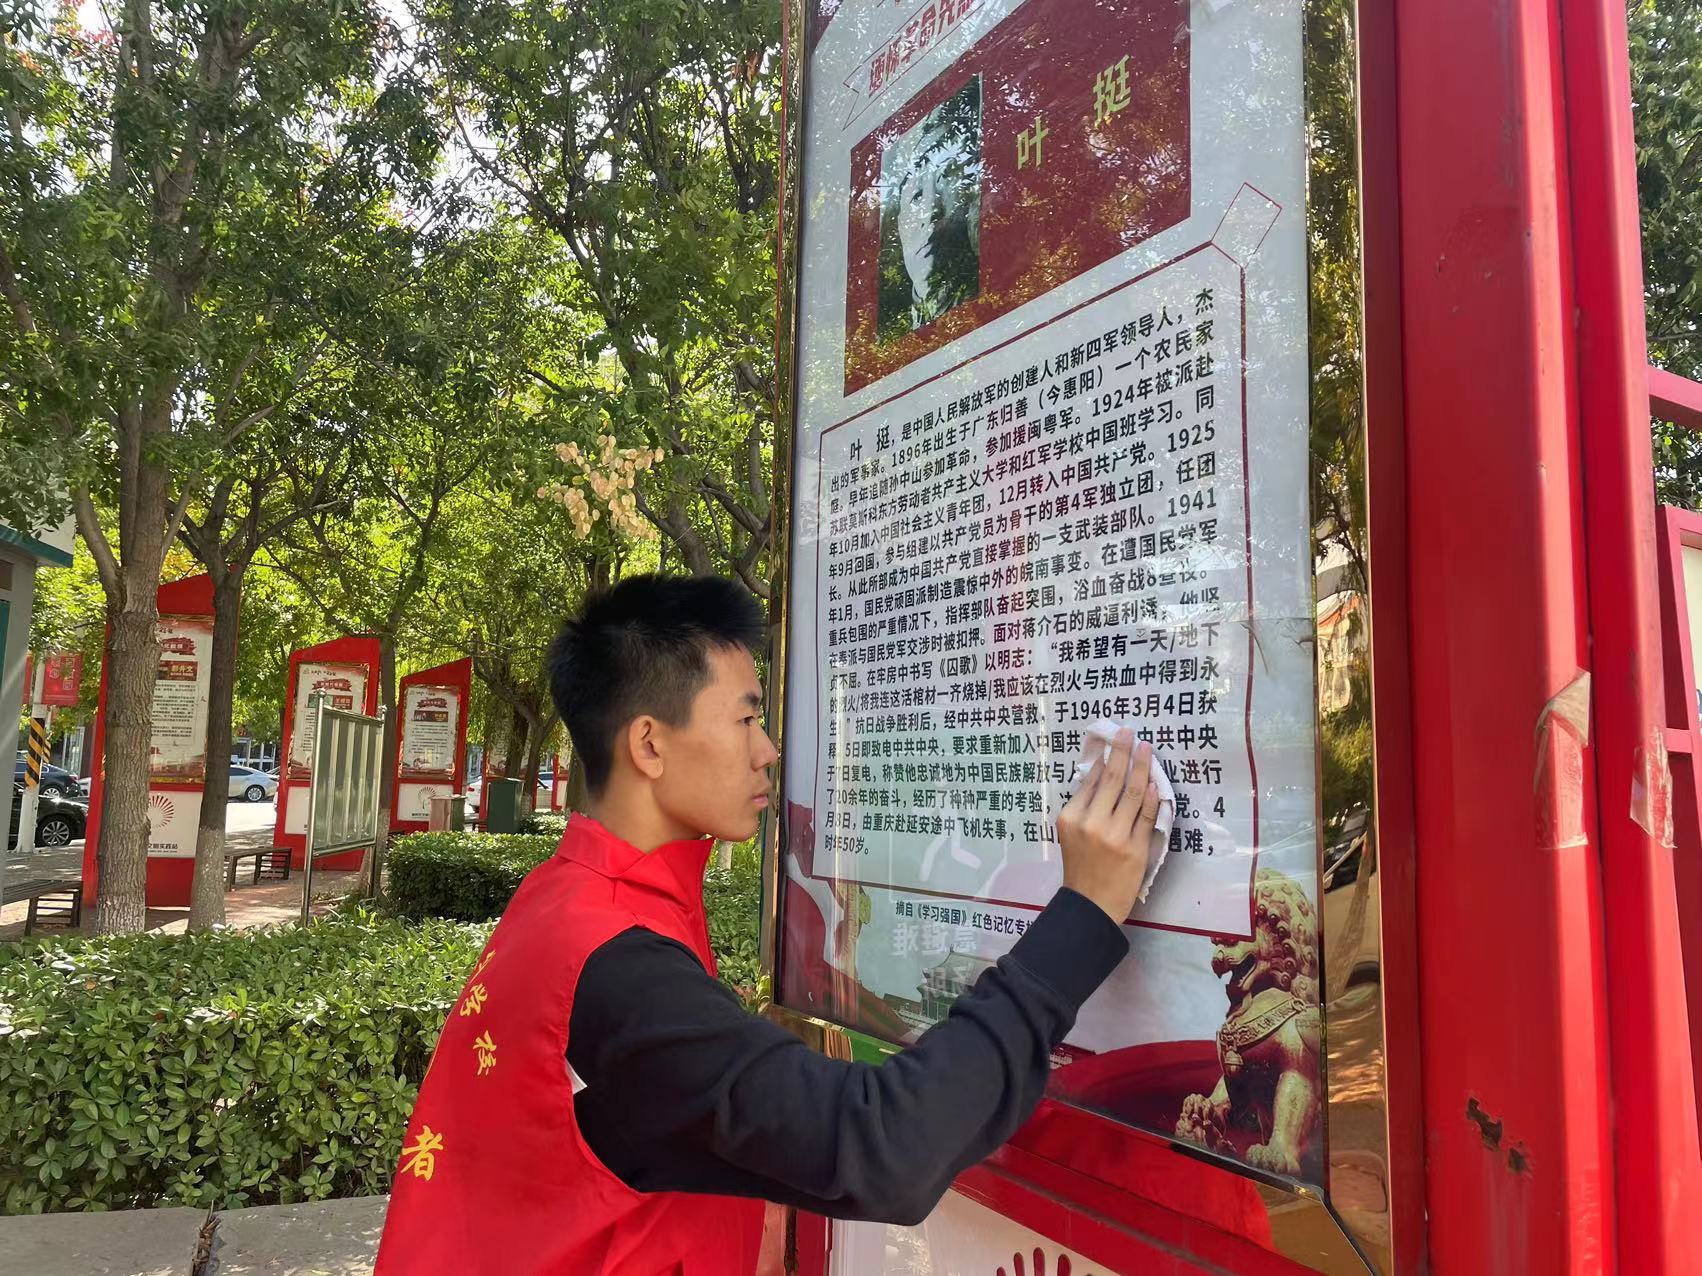 缅怀革命先烈
叶挺
叶 挺，是中国人民解放军的创建人和新四军领导人，杰
出的军事家。1896年出生于广东归善（今惠阳）一个农民家
庭。早年追随孙中山参加革命，参加援闽粤军。1924年被派赴
苏联莫斯科东方劳动者共产主义大学和红军学校中国班学习。同
年10月加入中国社会主义青年团，12月转入中国共产党。1925
年9月回国，参与组建以共产党员为骨干的第4军独立团，任团
长。从此所部成为中国共产党直接掌握的一支武装部队。1941
年1月，国民党顽固派制造震惊中外的皖南事变。在遭国民党军
重兵包围的严重情况下，指挥部队奋起突围，浴血奋战8昼夜。
在奉派与国民党军交涉时被扣押。面对蒋介石的威逼利诱，他坚
贞不屈。在牢房中书写《囚歌》以明志：“我希望有一天/地下
的烈火/将我连这活棺材一齐烧掉/我应该在烈火与热血中得到永
生”抗日战争胜利后，经中共中央营救，于1946年3月4日获
释。5日即致电中共中央，要求重新加入中国共 中共中央
于7日复电，称赞他忠诚地为中国民族解放与人 业进行
了20余年的奋斗，经历了种种严重的考验， 党。4
月8日，由重庆赴延安途中飞机失事，在山 遇难，
时年50岁。
摘自《学习强国》红色记忆专
学校
者